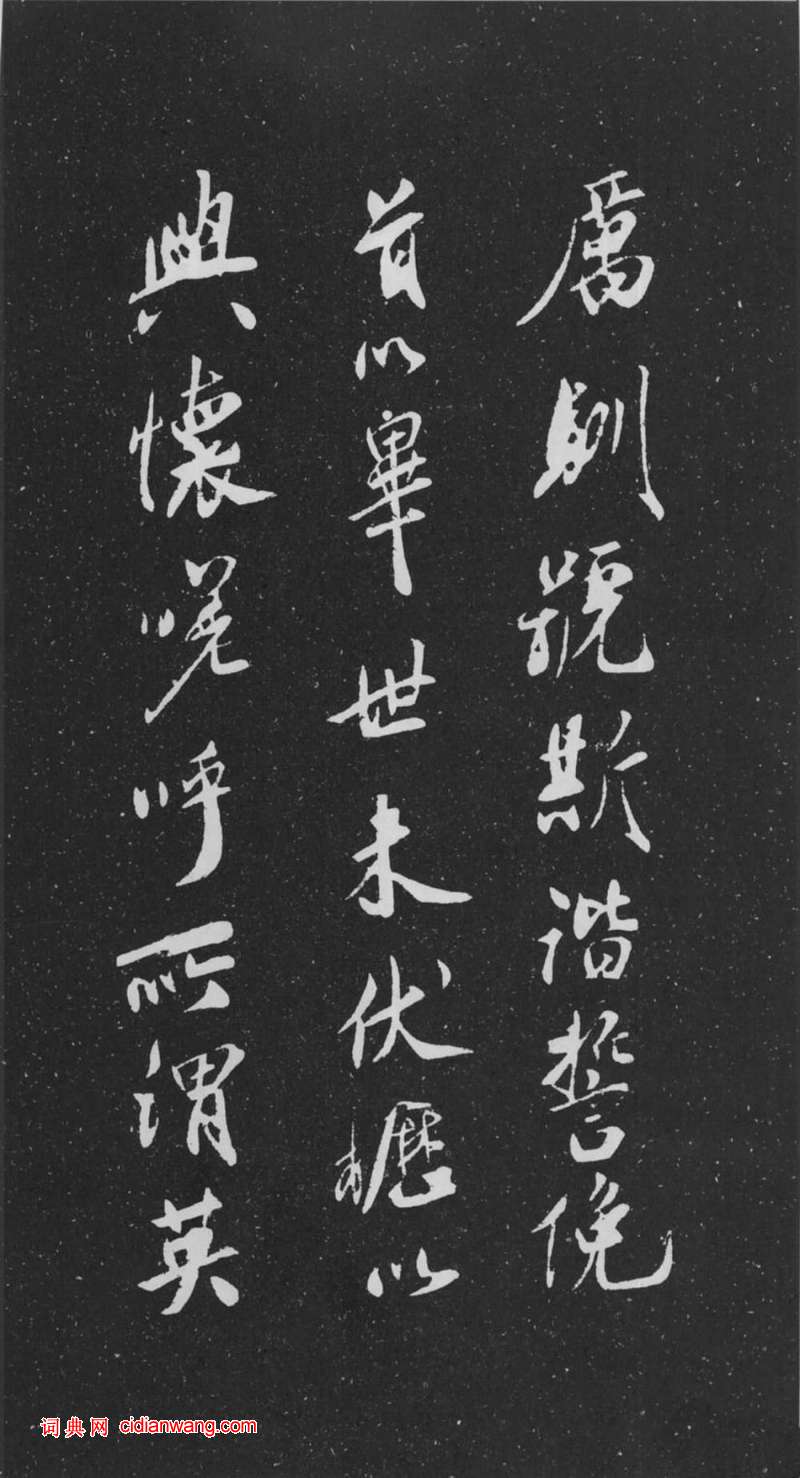 厲馴號斯諧誓俛
首以畢世未伏櫪以
興懷嗟呼所謂英
词典网 cidianwang.com